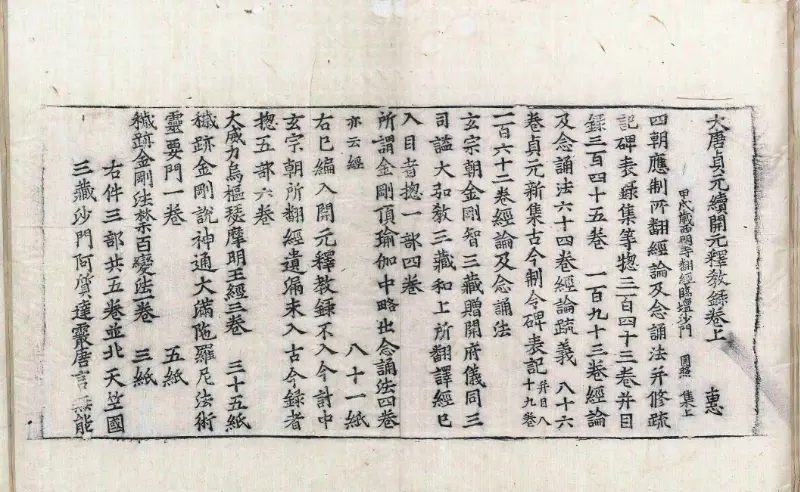 大唐貞元續開元釋教錄卷上 惠
甲戌歲西明寺翻經臨壇沙門 圓照 集上
四朝應制所翻經論及念誦法并修疏
記碑表錄集等惣三百四十三卷并目
錄三百四十五卷 一百九十三卷經論
及念誦法六十四卷經論疏義 八十六
卷貞元新集古今制令碑表記 并目八十九卷
一百六十二卷經論及念誦法
玄宗朝金剛智三藏贈開府儀同三
司謚大弘教三藏和上所翻譯經已
入目者惣一部四卷
所謂金剛頂瑜伽中略出念誦法四卷
亦云經 八十一紙
右已編入開元釋教錄不入今計中
玄宗朝所翻經遺漏未入古今錄者
惣五部六卷
大威力烏樞瑟摩明王經三卷 三十五紙
穢跡金剛說神通大滿陁羅尼法術
靈要門一卷 五紙
穢跡金剛法禁百變法一卷 三紙
右件三部共五卷並北天竺國
三藏沙門阿質達霰唐言無能